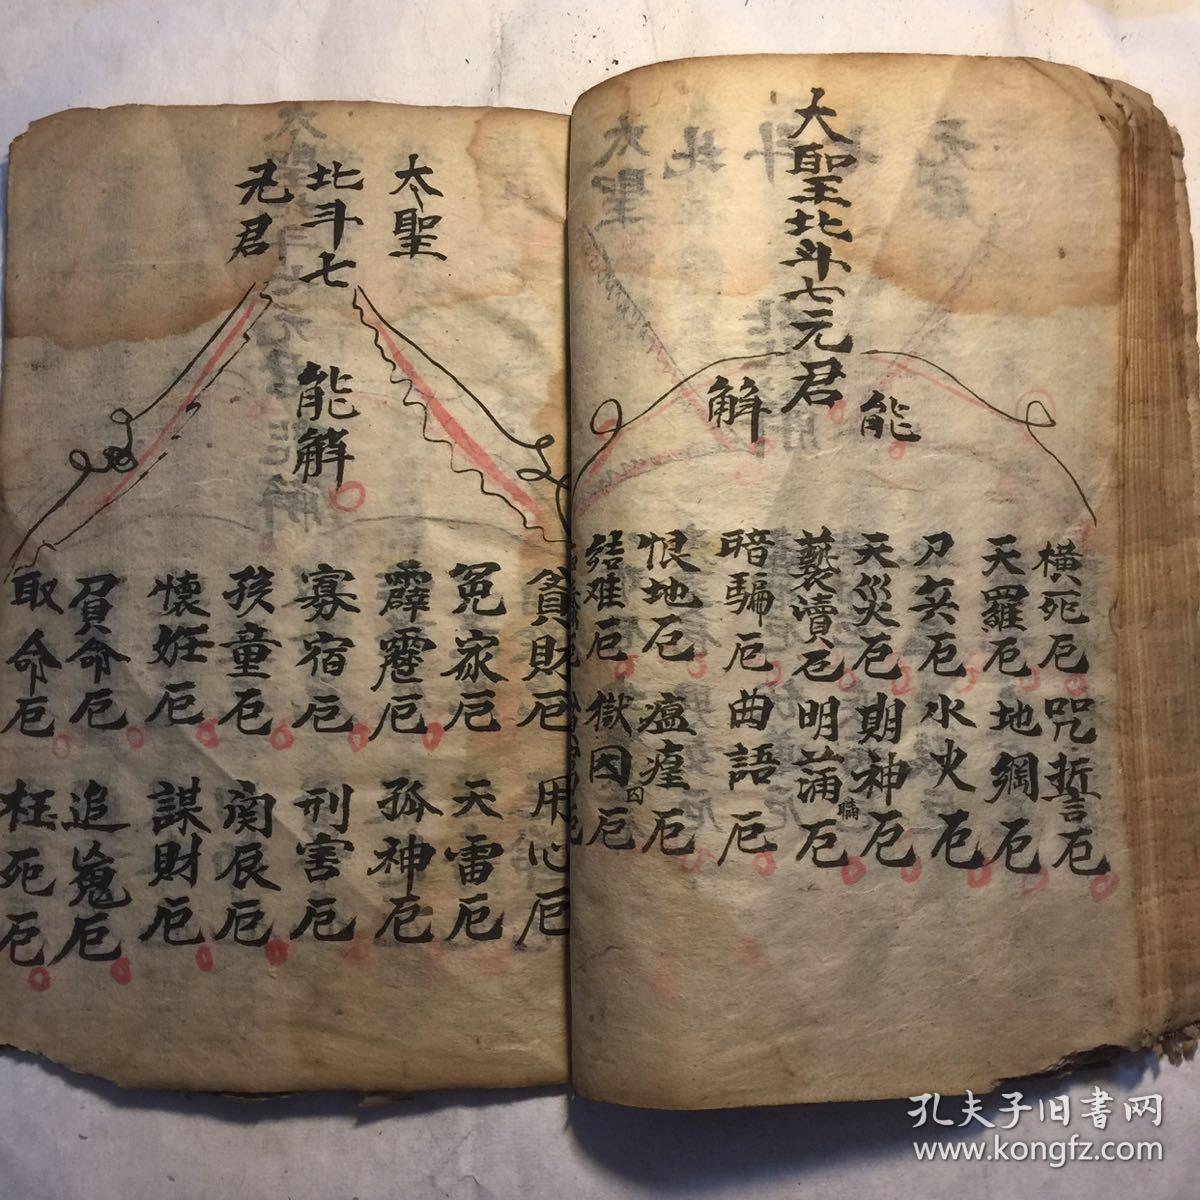 大聖北斗七元君
能
解
橫死厄 咒誓厄
天羅厄 地網厄
刀兵厄 水火厄
天災厄 期神厄
褻瀆厄 明
暗騙厄 曲語厄
恨地厄 瘟瘽厄
結难厄 獄囚厄
大聖
北斗七
元君
能解
貪財厄 用心厄
冤家厄 天雷厄
霹靂厄 孤神厄
寡宿厄 刑害厄
孩童厄 厄
懷妊厄 謀財厄
負命厄 追冤厄
取命厄 枉死厄
孔夫子旧书网
www.kongfz.com